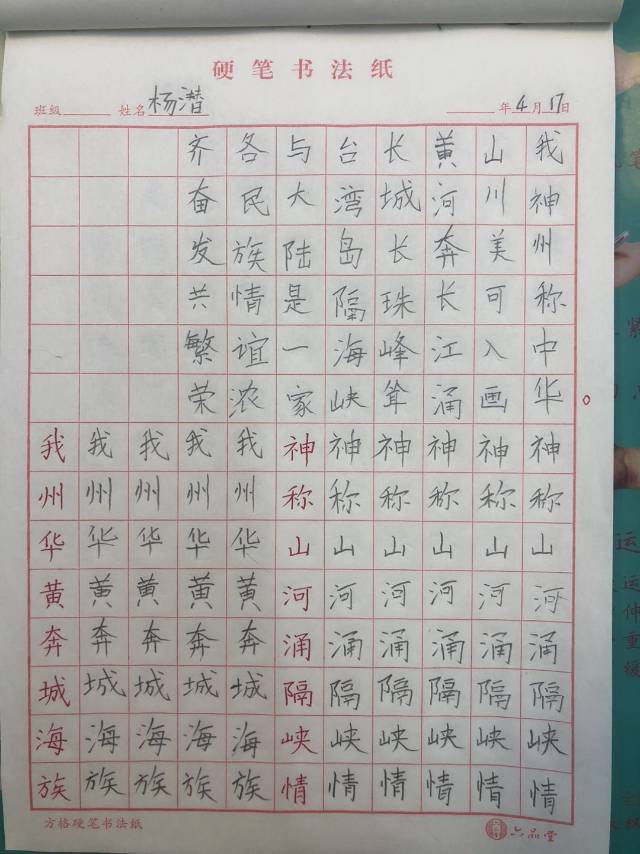 硬笔书法纸
班级 姓名 杨潜 年4月17日
我神州称中华
山川美可入画
黄河奔长江涌
长城长珠峰耸
台湾岛隔海峡
与大陆是一家
各民族情谊浓
齐奋发共繁荣
我我我我我神神神神神神
州州州州州称称称称称称
华华华华华山山山山山山
黄黄黄黄黄河河河河河河
奔奔奔奔奔涌涌涌涌涌涌
城城城城城隔隔隔隔隔隔
海海海海海峡峡峡峡峡峡
族族族族族情情情情情情
方格硬笔书法纸 六品堂